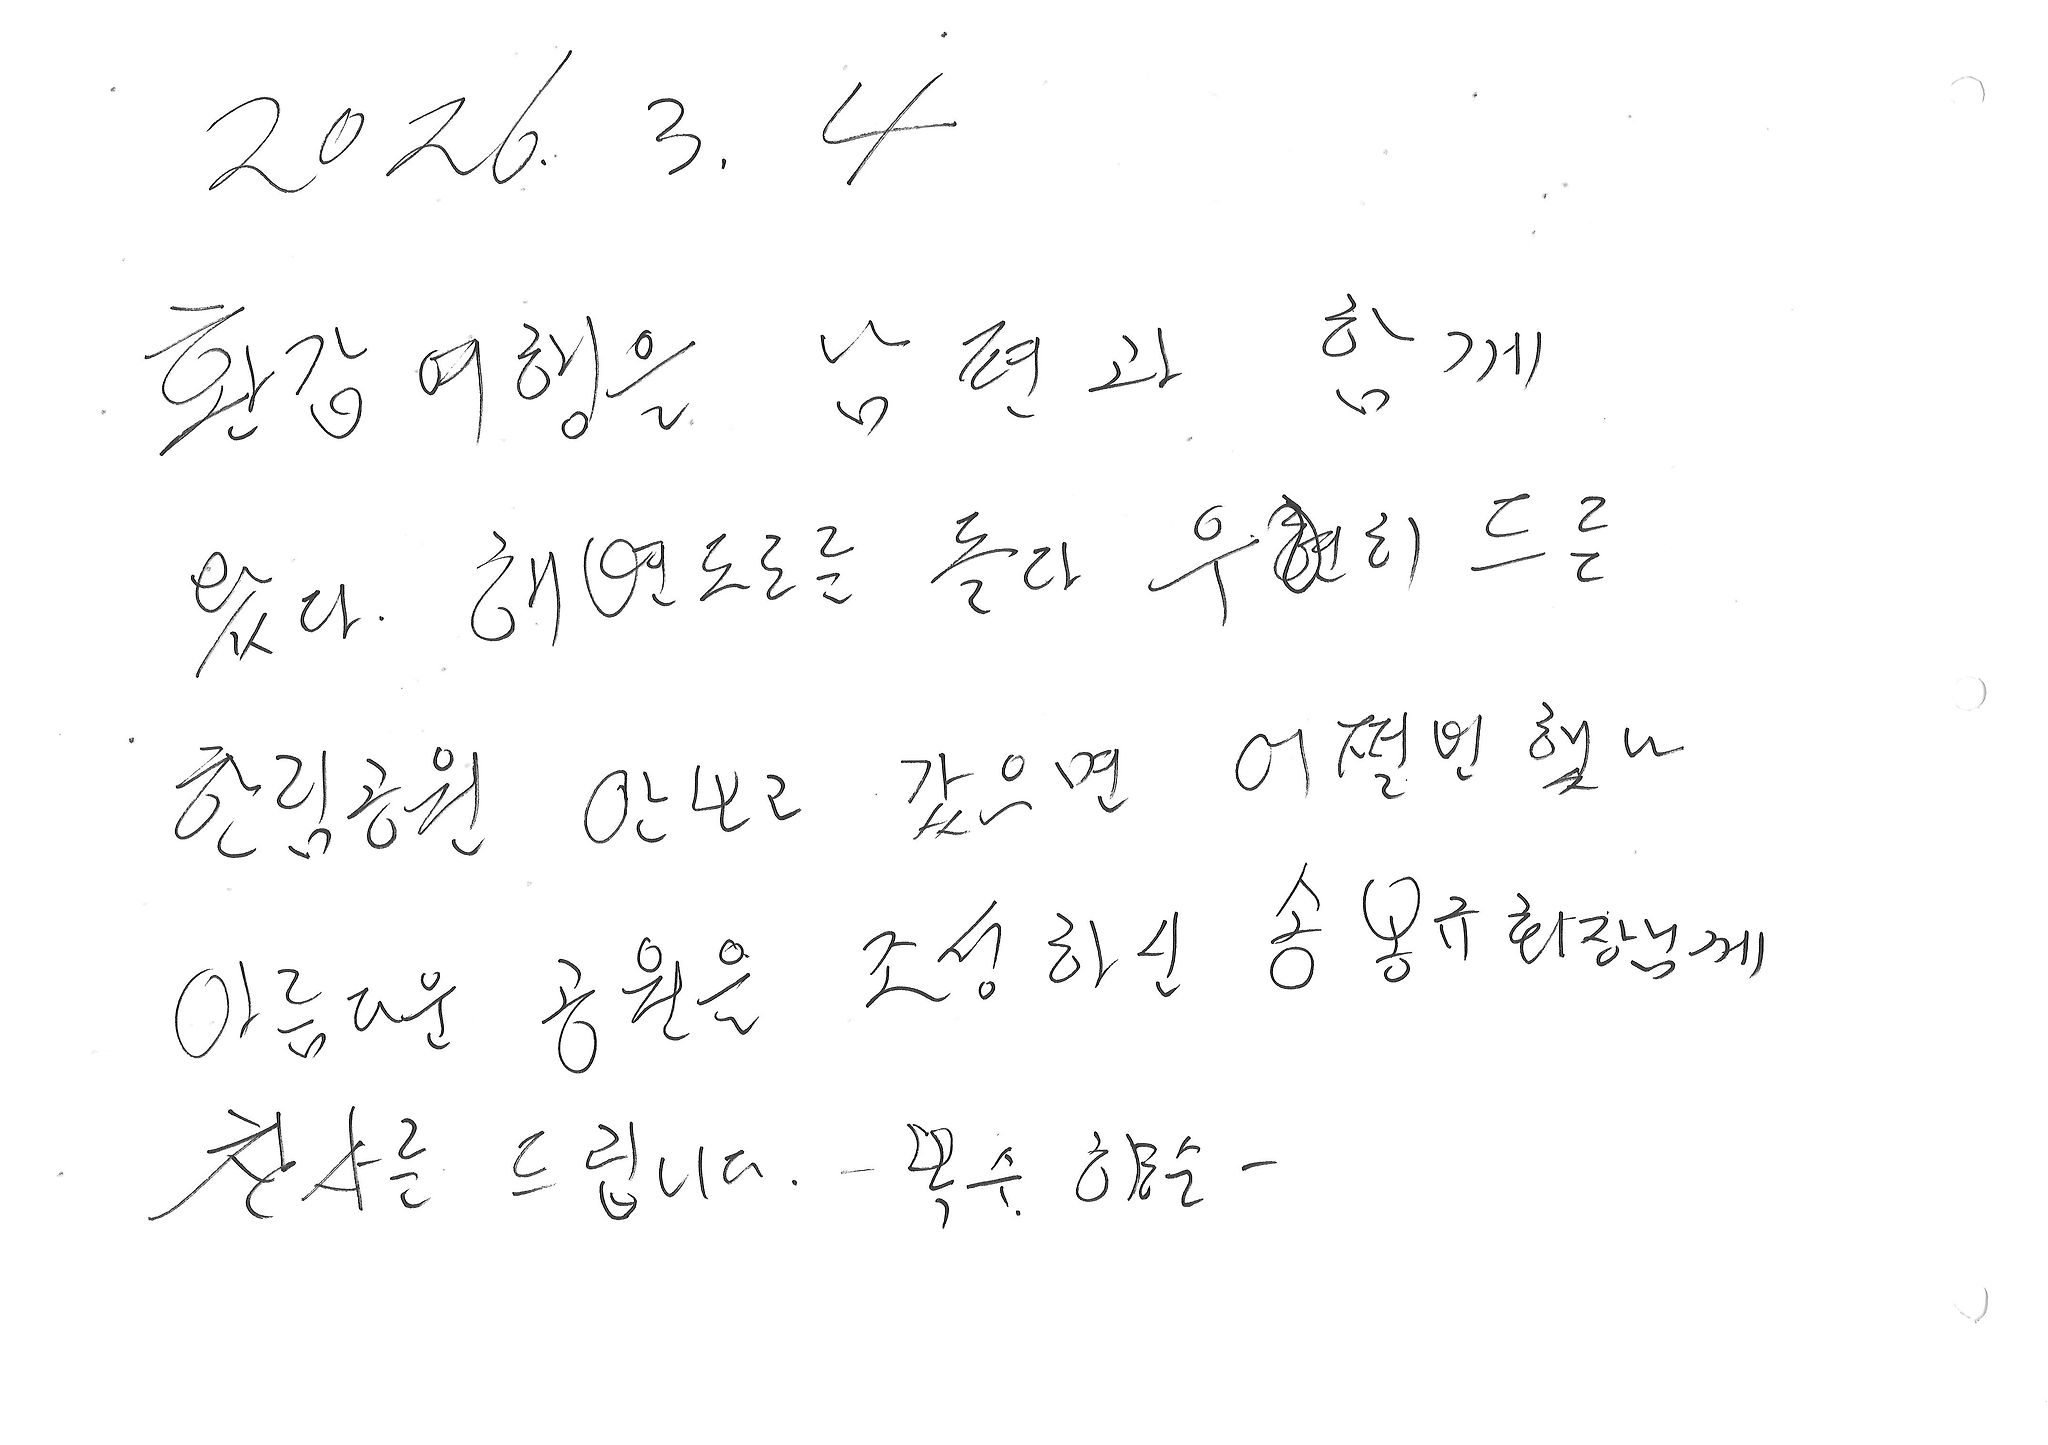 2026. 3. 4
환갑여행을 남편과 함께
왔다. 해변도로를 돌다 우연히 드른
한림공원 안보고 갔으면 어쩔번 했나
아름다운 공원을 조성하신 송봉규회장님께
찬사를 드립니다.